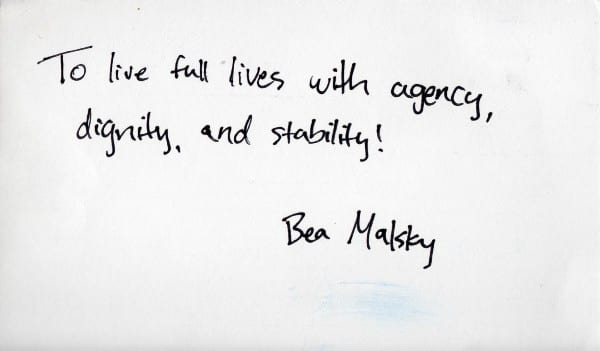 To live full lives with agency,
dignity, and stability!
Bea Malsky